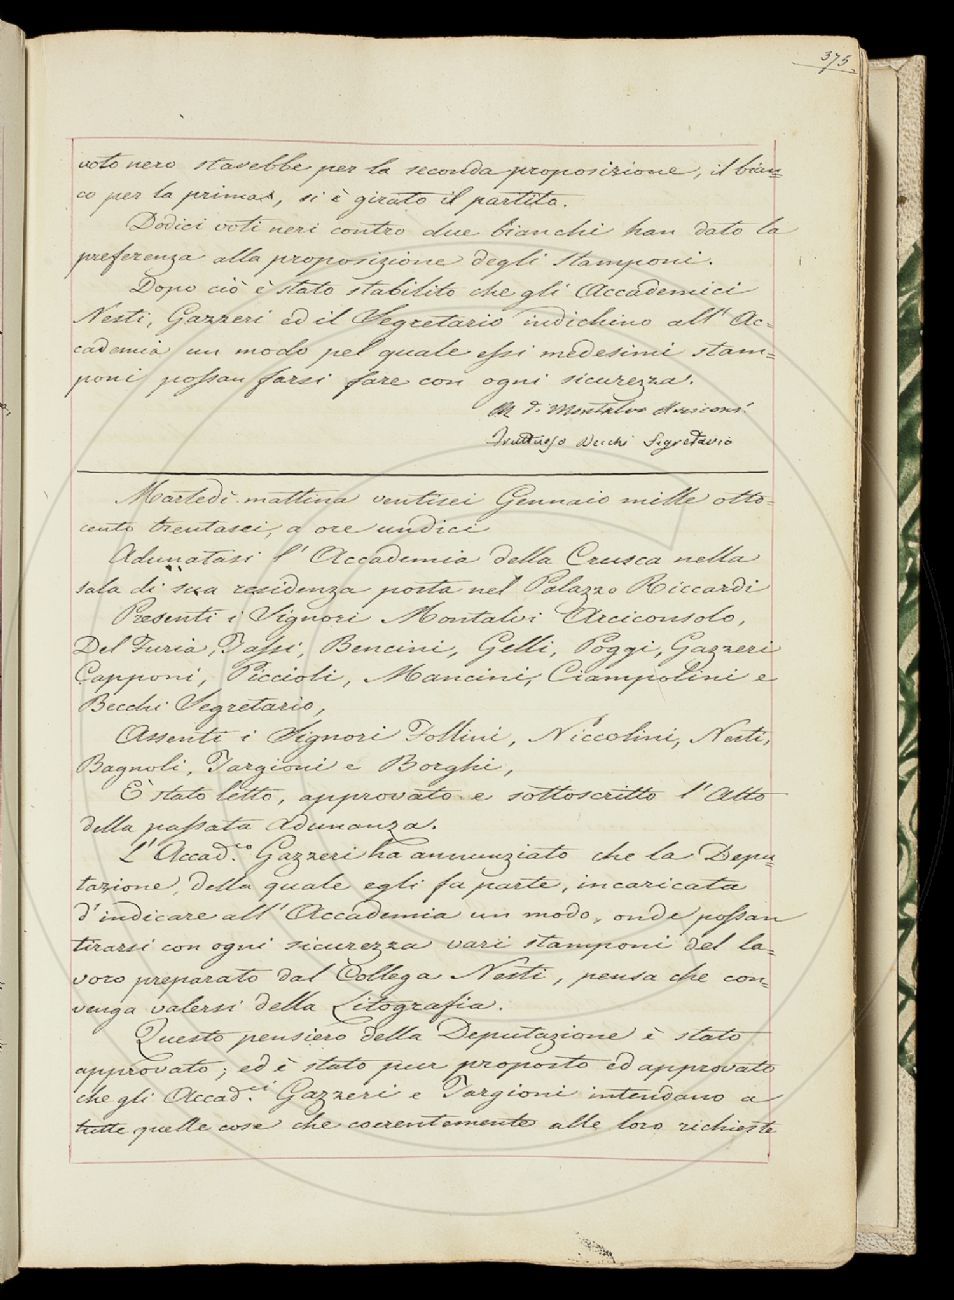 375
voto nero starebbe per la seconda proposizione, il bian=
co per la prima, si è girato il partito.
Dodici voti neri contro due bianchi han dato la
preferenza alla proposizione degli stamponi.
Dopo ciò è stato stabilito che gli Accademici
Nesti, Gazzeri ed il Segretario indichino all' Ac=
cademia un modo pel quale essi medesimi stam=
poni possan farsi fare con ogni sicurezza.
A. d. Montalvo Arciconso
Fruttuoso Becchi Segretario
Martedì mattina ventisei Gennaio mille otto=
cento trentasei, a ore undici
Adunatasi l' Accademia della Crusca nella
sala di sua residenza posta nel Palazzo Riccardi
Presenti i Signori Montalvi Arciconsolo,
Del Furia, Tassi, Bencini, Gelli, Poggi, Gazzeri
Capponi, Piccioli, Mancini, Ciampolini e
Becchi Segretario,
Assenti i Signori Follini, Niccolini, Nesti,
Bagnoli, Targioni e Borghi,
È stato letto, approvato e sottoscritto l' Atto
della passata Adunanza.
L' Accad.co Gazzeri ha annunziato che la Depu=
tazione, della quale egli fa parte, incaricata
d' indicare all' Accademia un modo, onde possan
tirarsi con ogni sicurezza vari stamponi del la=
voro preparato dal Collega Nesti, pensa che con=
venga valersi della Litografia.
Questo pensiero della Deputazione è stato
approvato; ed è stato pur proposto ed approvato
che gli Accad.ci Gazzeri e Targioni intendano a
tutte quelle cose che coerentemente alle loro richieste